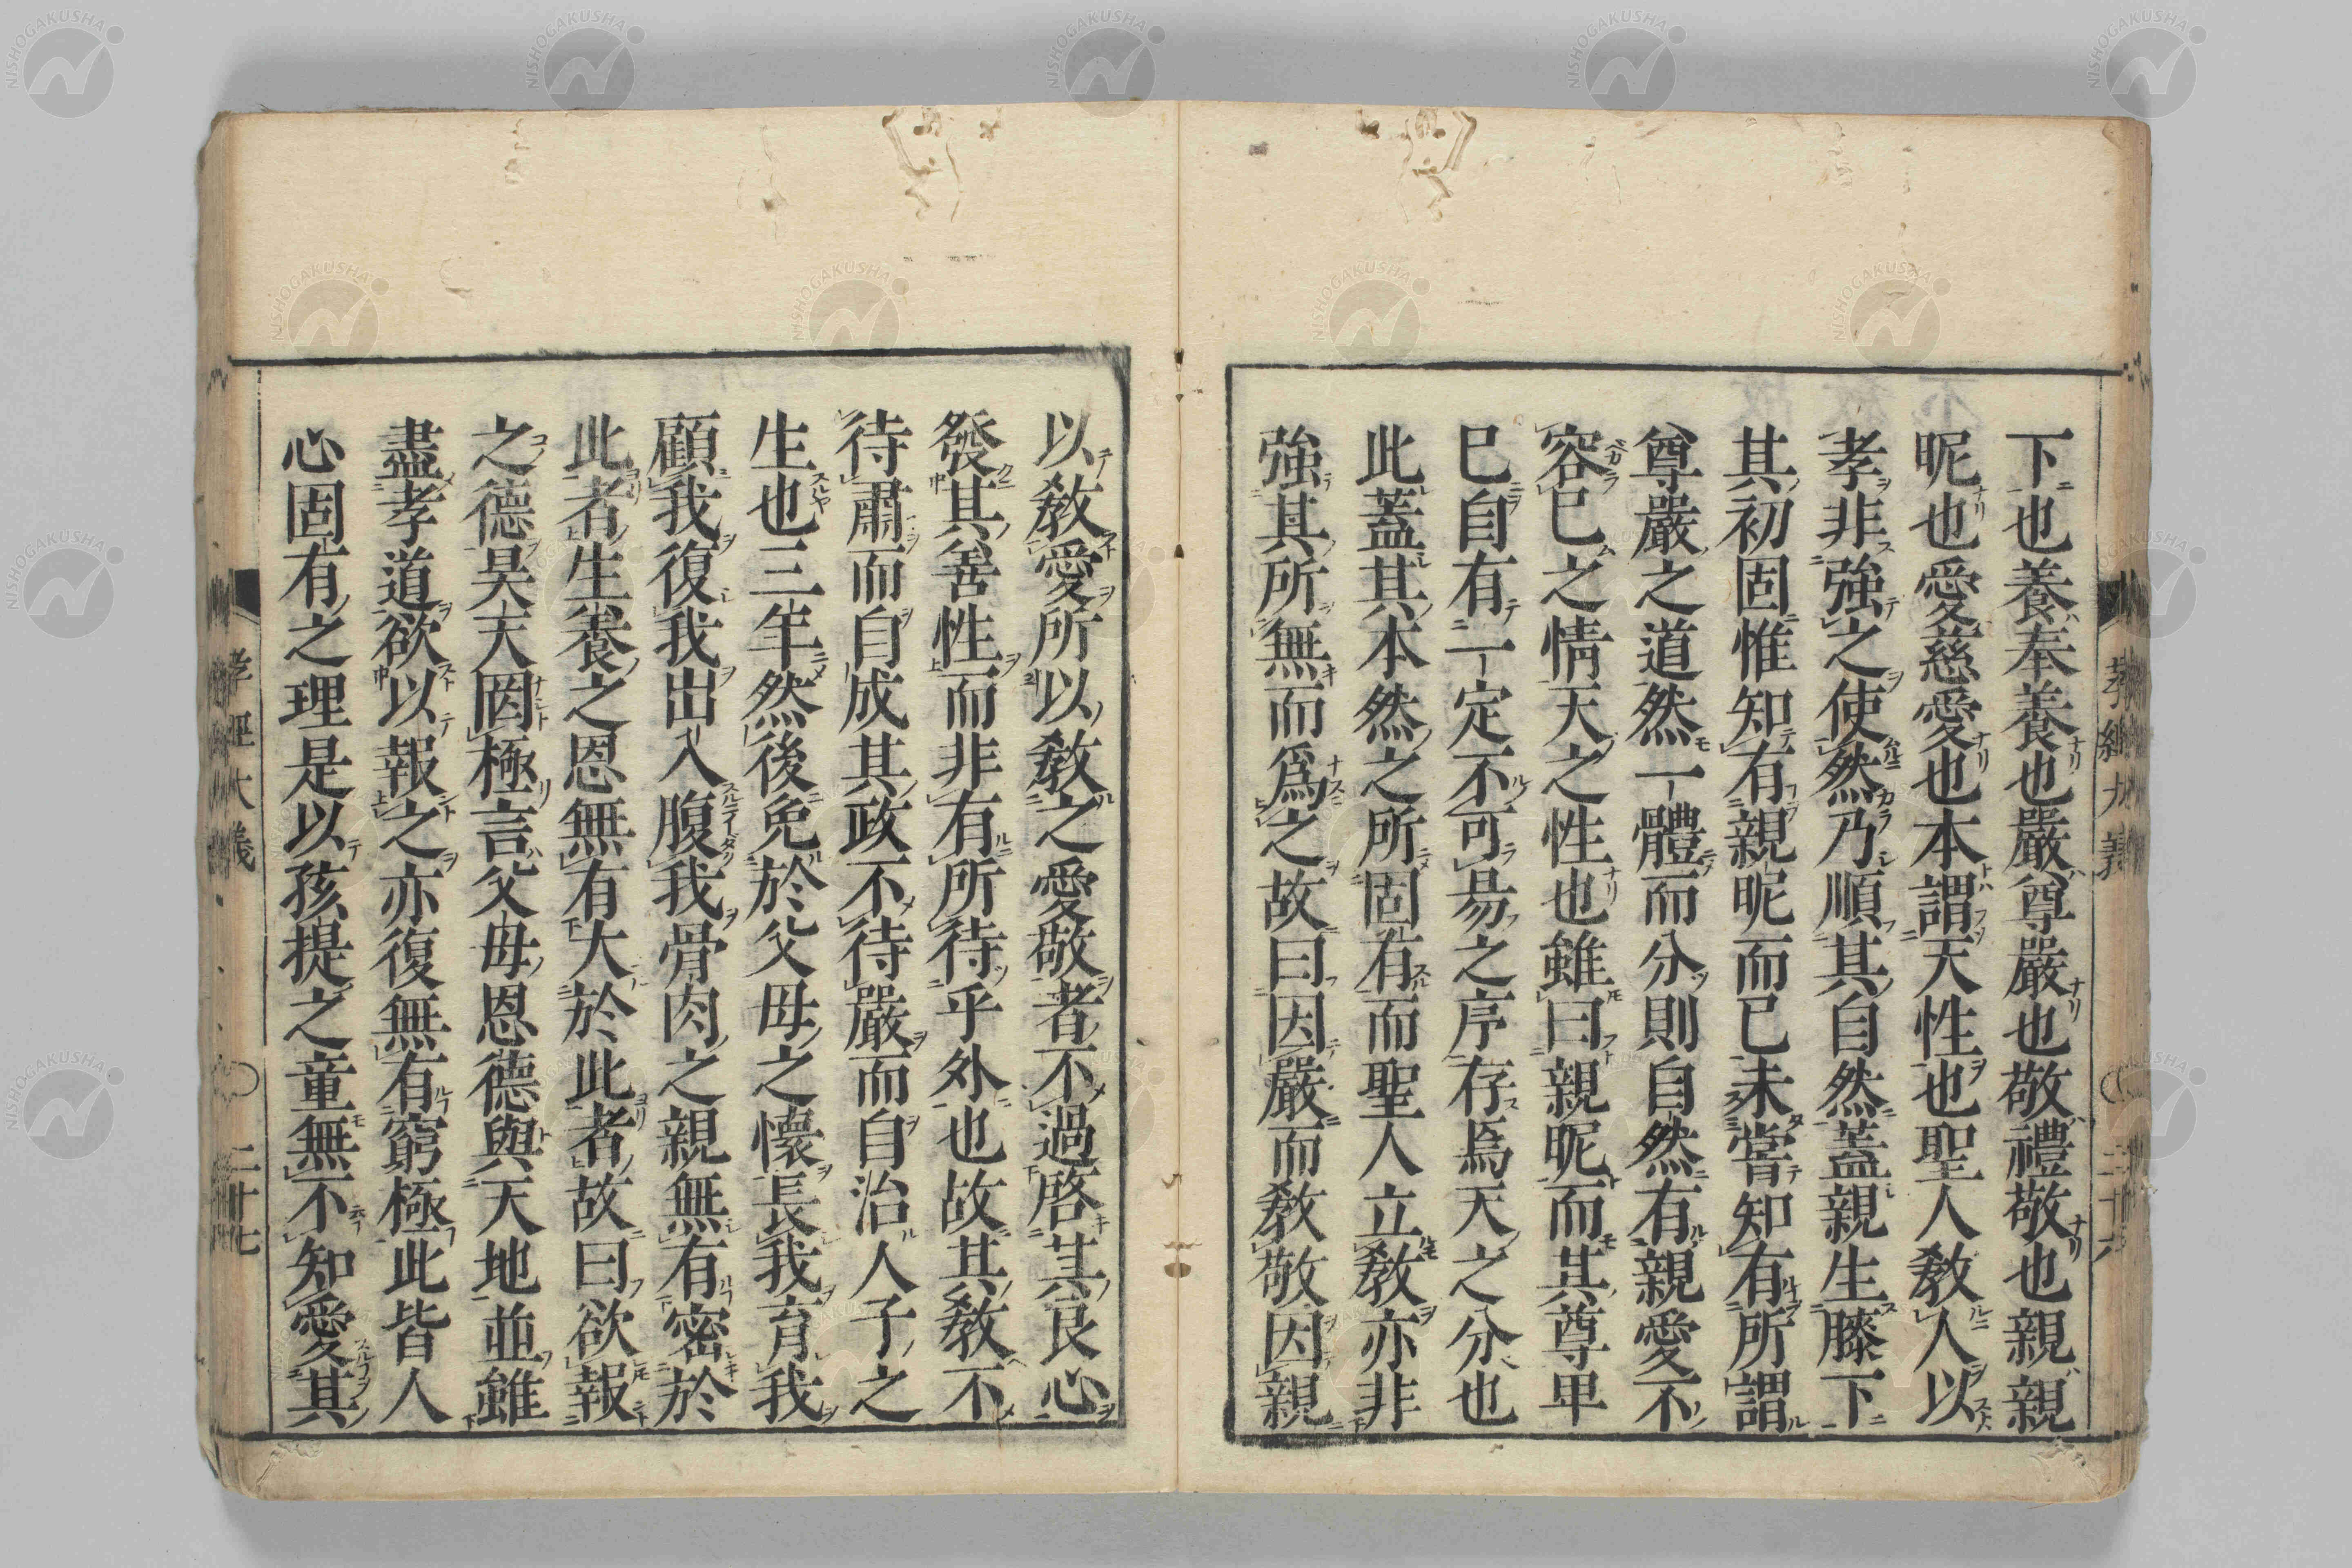 下也養奉養也嚴尊嚴也敬禮敬也親親
昵也愛慈愛也本謂天性也聖人敎人以
孝非強之使然乃順其自然蓋親生膝下
其初固惟知有親昵而已未嘗知有所謂
尊嚴之道然一體而分則自然有親愛不
容已之情天之性也雖曰親昵而其尊卑
已自有一定不可昜之序存焉天之分也
此蓋其本然之所固有而聖人立敎亦非
強其所無而爲之故曰因嚴而敎敬因親
以敎愛所以敎之愛敬者不過啓其良心
發其善性而非有所待乎外也故其敎不
待肅而自成其政不待嚴而自治人子之
生也三年然後免於父母之懷長我育我
顧我復我出入腹我骨肉之親無有密於
此者生養之恩無有大於此者故曰欲報
之德昊天罔極言父母恩德與天地並雖
盡孝道欲以報之亦復無有窮極此皆人
心固有之理是以孩提之童無不知愛其
孝經大義 二十七
NISHOGAKUSHA